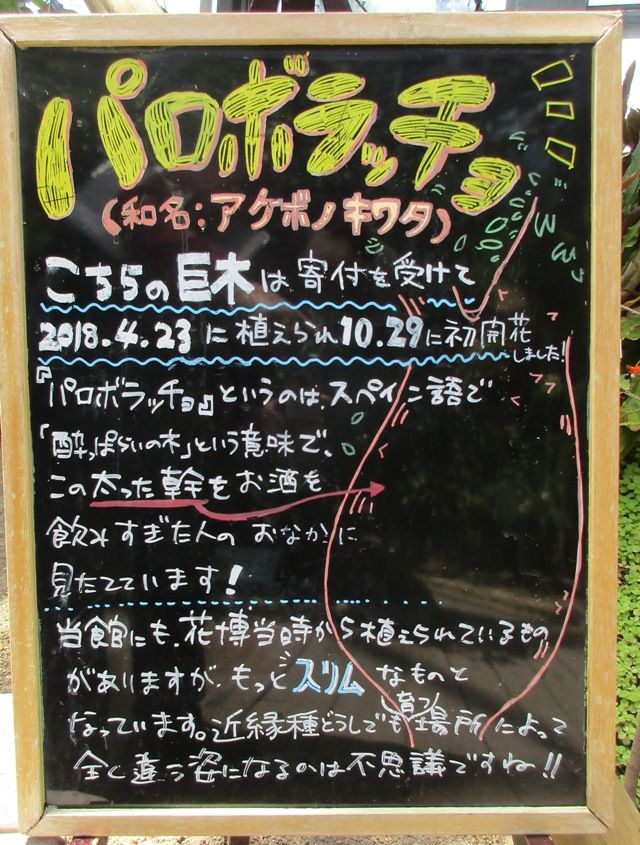 パロボラッチョ
(和名:アケボノキワタ)
こちらの巨木は寄付を受けて
2018.4.23に植えられ10.29に初開花しました!
『パロボラッチョ』というのは、スペイン語で
「酔っぱらいの木」という意味で、
この太った幹をお酒を
飲みすぎた人のおなかに
見たてています!
当館にも、花博当時から植えられているもの
がありますが、もっとスリムなものと
なっています。近縁種どうしでも育つ場所によって
全く違う姿になるのは不思議ですね!!